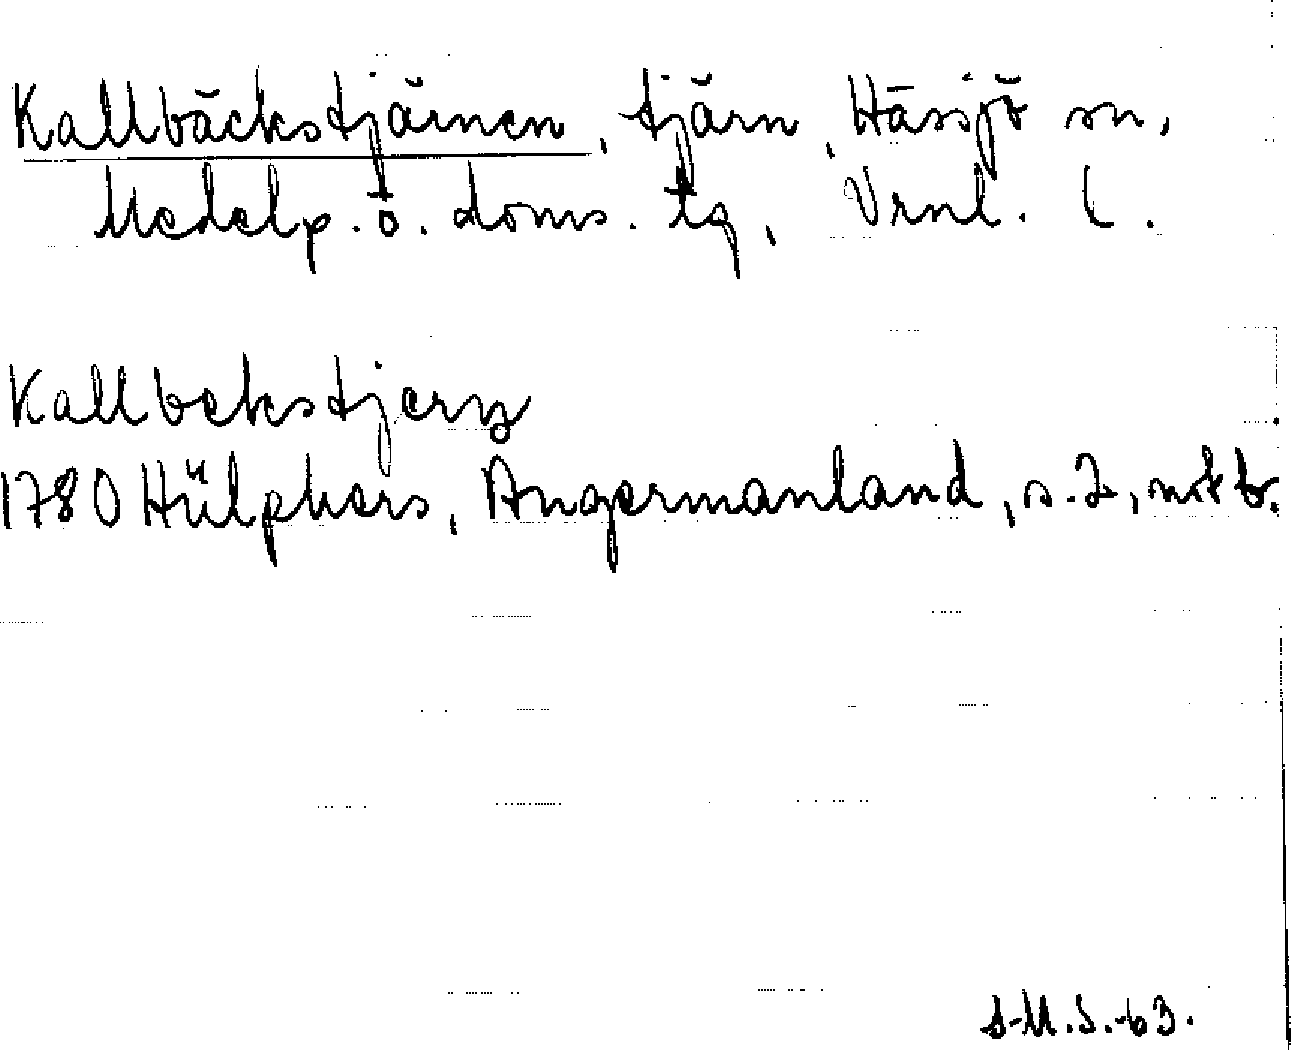 Kallbäckstjärnen, tjärn, Hässjö sn,
Medelp. ö. doms. tg, Vrnl. l.
Kallbekstjern
1780 Hülphers, Angermanland, s. 2, not b.
S-M.S.-63.